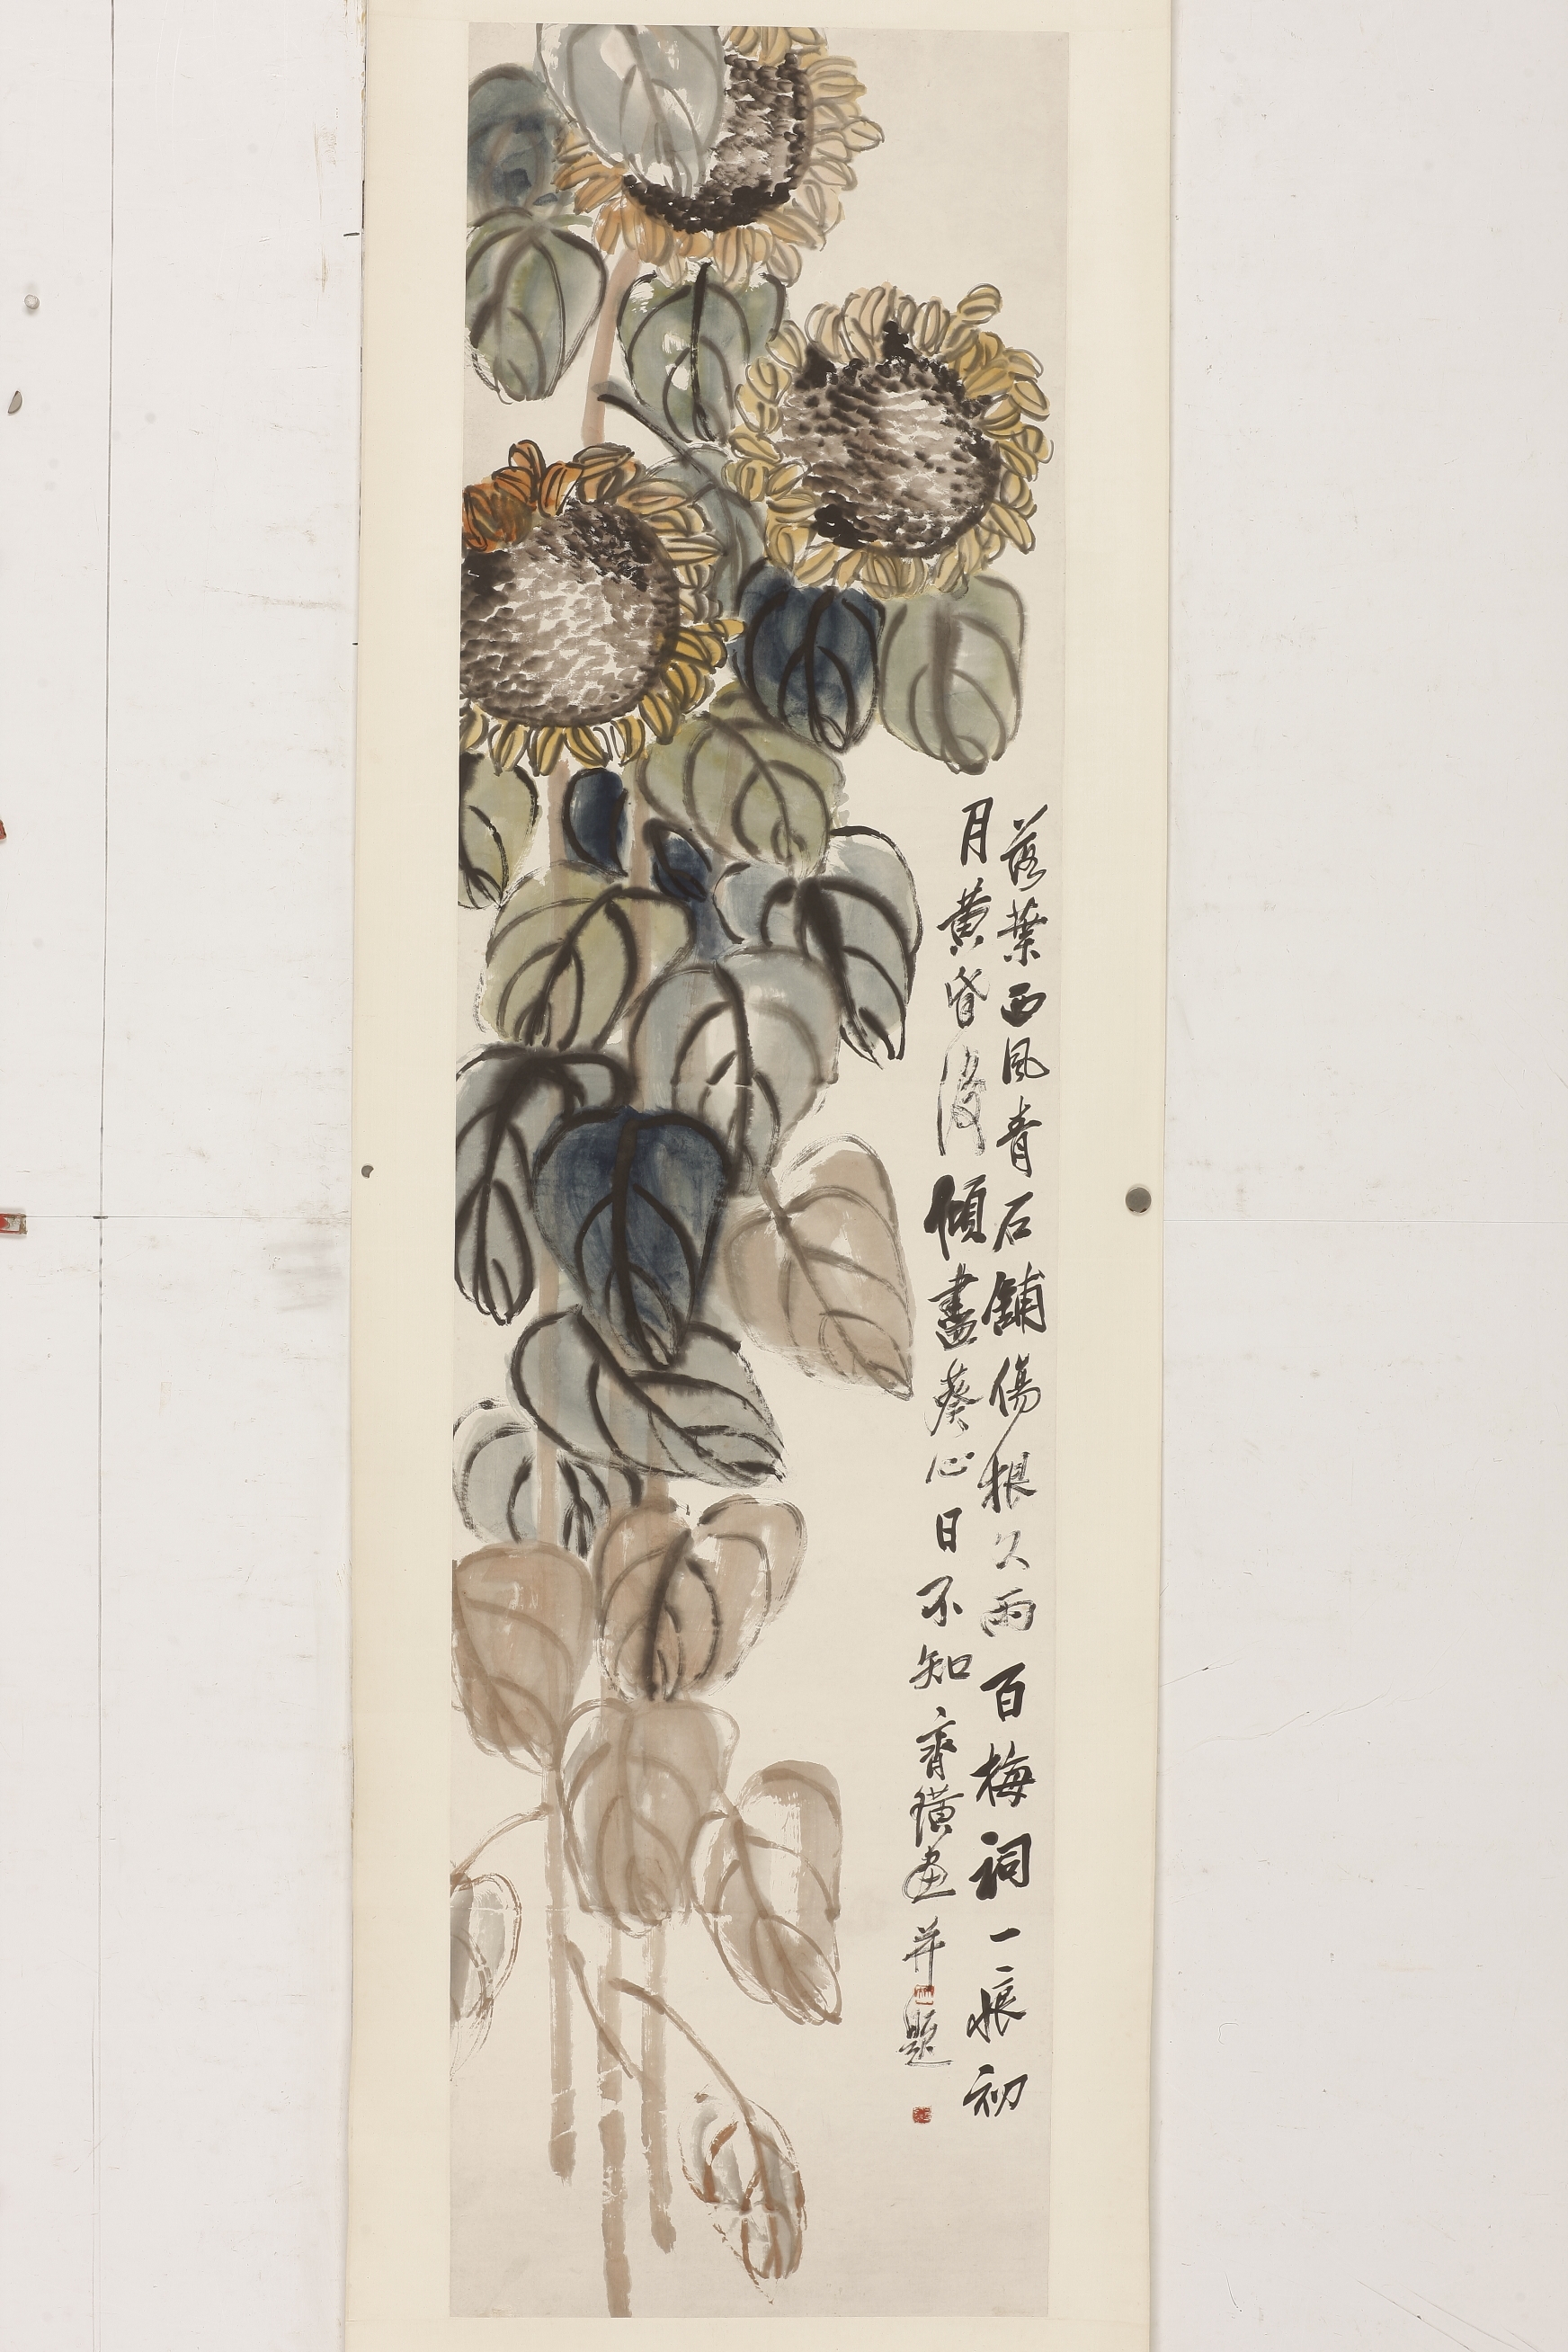 落葉西風青石鋪傷根久雨百梅詞一痕初
月黃昏後傾盡葵心日不知齊璜畫并題